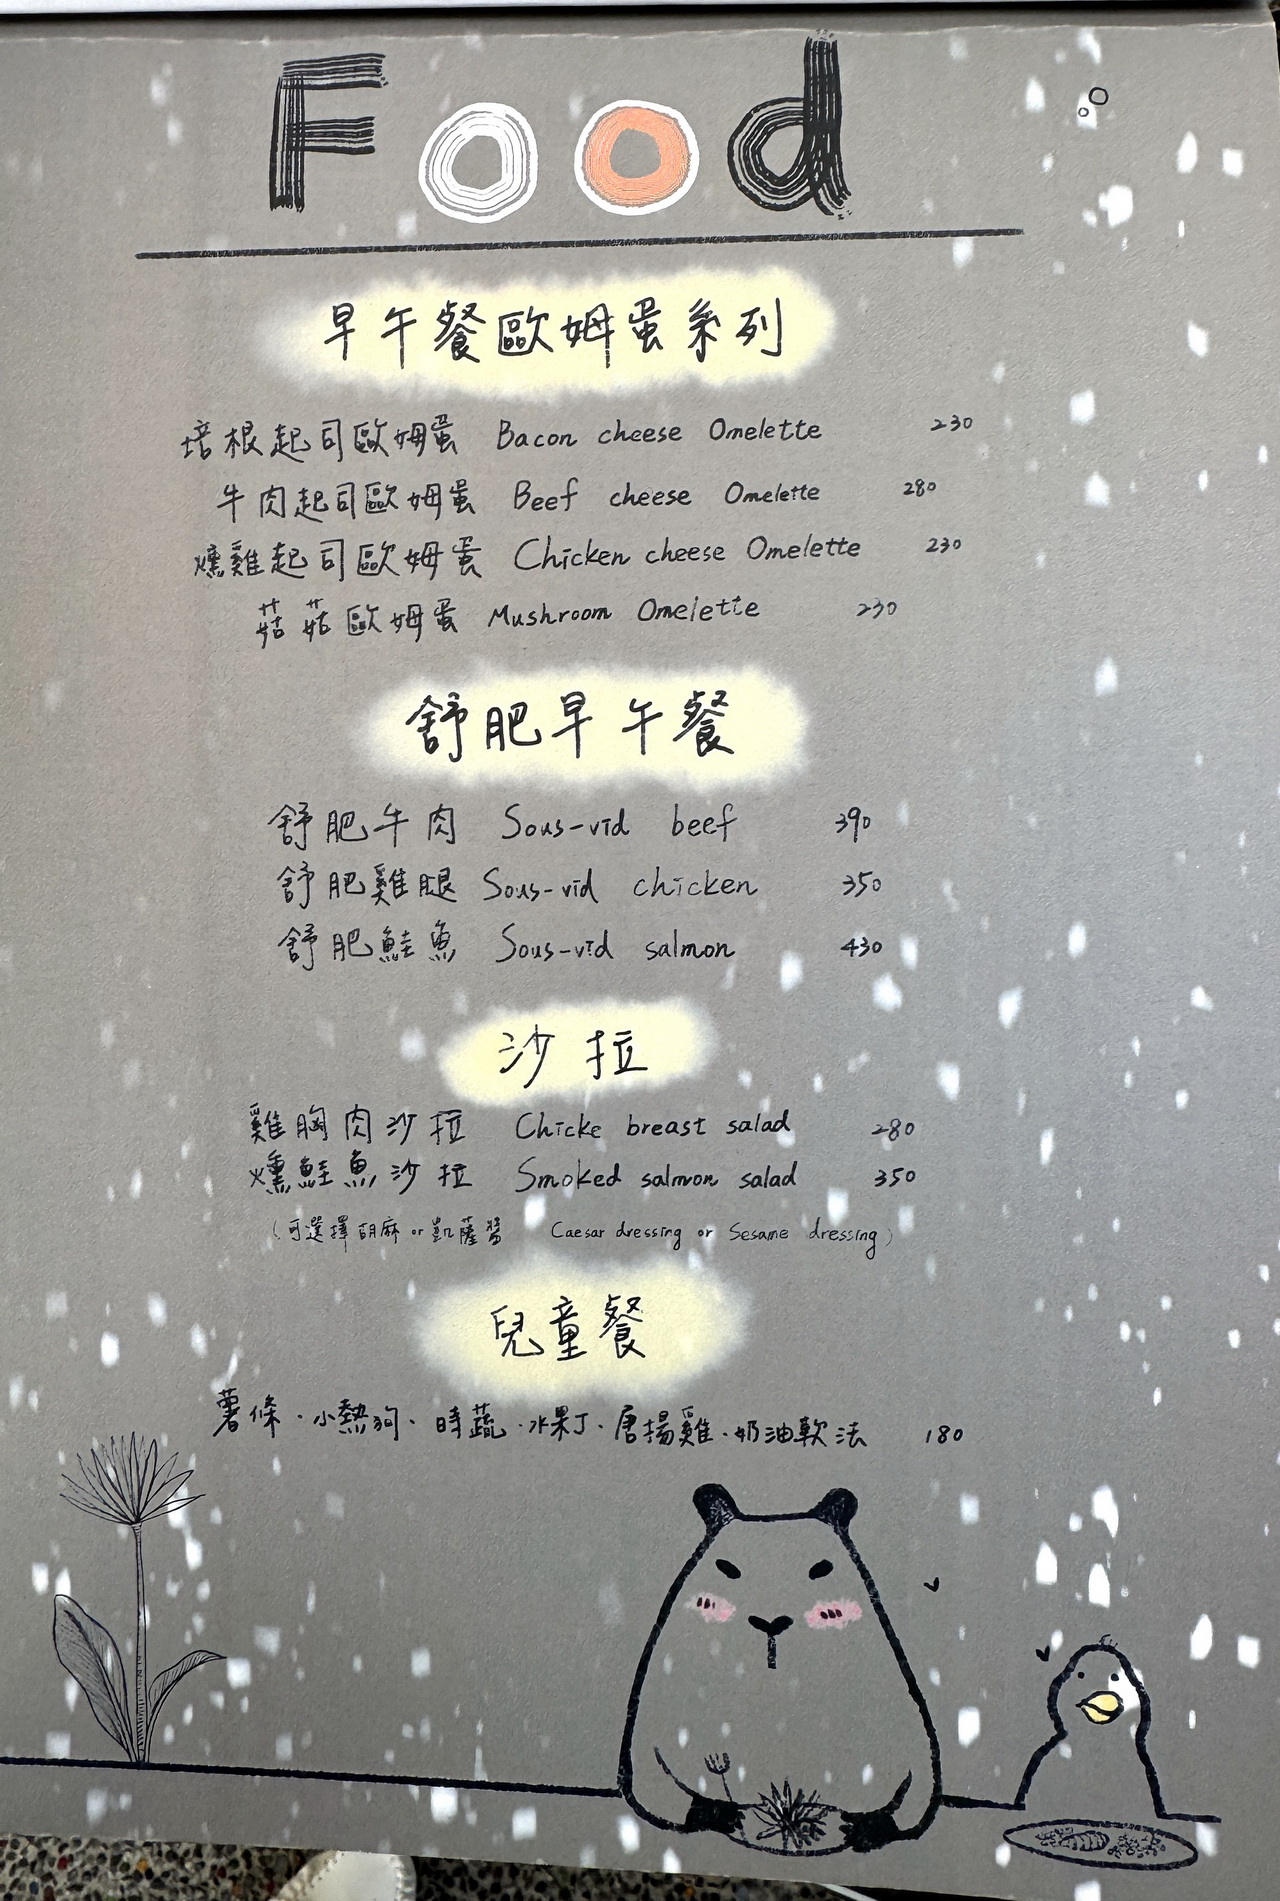 Food
早午餐歐姆蛋系列
培根起司歐姆蛋 Bacon cheese Omelette 230
牛肉起司歐姆蛋 Beef cheese Omelette 280
燻雞起司歐姆蛋 Chicken cheese Omelette 230
菇菇歐姆蛋 Mushroom Omelette 230
舒肥早午餐
舒肥牛肉 Sous-vid beef 390
舒肥雞腿 Sous-vid chicken 350
舒肥鮭魚 Sous-vid salmon 430
沙拉
雞胸肉沙拉 Chicke breast salad 280
燻鮭魚沙拉 Smoked salmon salad 350
(可選擇胡麻or凱薩醬 Caesar dressing or Sesame dressing)
兒童餐
薯條·小熱狗·時蔬·水果丁·唐揚雞·奶油軟法 180